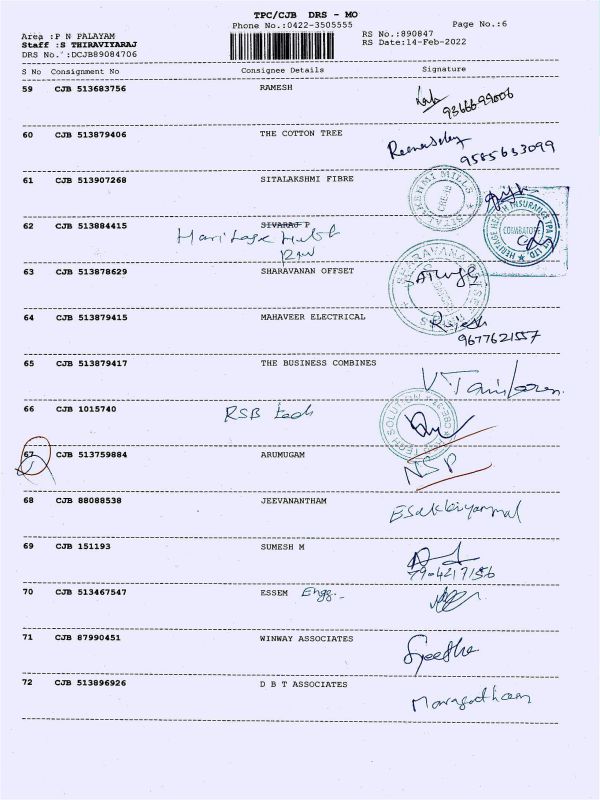 TPC/CJB DRS - MO
Phone No.:0422-3505555 Page No.:6
Area :P N PALAYAM RS No.:890847
Staff :S THIRAVIYARAJ RS Date:14-Feb-2022
DRS No.:DCJB89084706
S No Consignment No Consignee Details Signature
59 CJB 513683756 RAMESH
9366699006
60 CJB 513879406 THE COTTON TREE
9585633099
61 CJB 513907268 SITALAKSHMI FIBRE
62 CJB 513884415 SIVARAJ P
HERITAGE HEALTH INSURANCE TPA LTD.
COIMBATORE
63 CJB 513878629 SHARAVANAN OFFSET
64 CJB 513879415 MAHAVEER ELECTRICAL Rajesh
9677621557
65 CJB 513879417 THE BUSINESS COMBINES
66 CJB 1015740 RSB tech
67 CJB 513759884 ARUMUGAM NSP
68 CJB 88088538 JEEVANANTHAM Esakkiyammal
69 CJB 151193 SUMESH M
7904217156
70 CJB 513467547 ESSEM Engg.
71 CJB 87990451 WINWAY ASSOCIATES
72 CJB 513896926 D B T ASSOCIATES